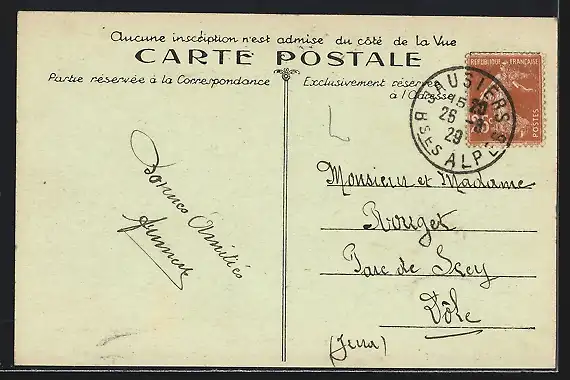 Aucune inscription n'est admise du côté de la Vue
CARTE POSTALE
Partie réservée à la Correspondance
Exclusivement réservé
à l'Adresse
REPUBLIQUE FRANÇAISE
POSTES
JAUSIERS
15
26
29
BSES ALPES
Bonnes Amitiés
Monsieur et Madame
Rouget
Parc de Scey
Dôle
(Jura)